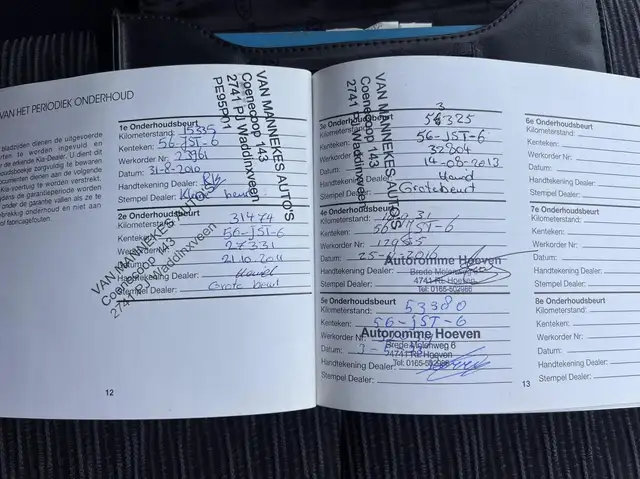 VAN HET PERIODIEK ONDERHOUD
bladzijden dienen de uitgevoerde
te worden ingevuld en
erkende Kia-Dealer. U dient dit
zorgvuldig te bewaren
dienen aan de volgende
Kia-voertuig te worden verstrekt.
garantieperiode worden
onder de garantie vallen als ze te
gebrekkig onderhoud en niet aan
of fabricagefouten.
1e Onderhoudsbeurt
Kilometerstand: 15335
Kenteken: 56-JST-6
Werkorder Nr: 23961
Datum: 31-8-2010
Handtekening Dealer:
Stempel Dealer: Kleine beurt
VAN MANNEKES AUTO'S
Coenecoop 143
2741 PJ Waddinxveen
PE95P01
2e Onderhoudsbeurt
31474
Kilometerstand:
Kenteken: 56-JST-6
27331
Datum: 21.10.2011
Handtekening Dealer:
Stempel Dealer: Grote beurt
VAN MANNEKES AUTO'S
Coenecoop 143
2741 PJ Waddinxveen
12
3e Onderhoudsbeurt
Kilometerstand: 56325
Kenteken: 56-JST-6
Werkorder Nr: 32804
Datum: 14-08-2013
Handtekening Dealer:
Stempel Dealer: Grote beurt
VAN MANNEKES AUTO'S
Coenecoop 143
2741 PJ Waddinxveen
4e Onderhoudsbeurt
Kilometerstand:
Kenteken: 56 JST-6
Werkorder Nr:
Datum:
Handtekening Dealer:
Stempel Dealer:
Autoromme Hoeven
Brede Molenweg 6
4741 RE Hoeven
Tel: 0165-502986
5e Onderhoudsbeurt
Kilometerstand: 53380
Kenteken: 56-JST-6
Werkorder Nr:
Datum:
Handtekening Dealer:
Stempel Dealer:
Autoromme Hoeven
Brede Molenweg 6
4741 RE Hoeven
Tel: 0165-502986
6e Onderhoudsbeurt
Kilometerstand:
Kenteken:
Werkorder Nr:
Datum:
Handtekening Dealer:
Stempel Dealer:
7e Onderhoudsbeurt
Kilometerstand:
Kenteken:
Werkorder Nr:
Datum:
Handtekening Dealer:
Stempel Dealer:
8e Onderhoudsbeurt
Kilometerstand:
Kenteken:
Werkorder Nr:
Datum:
Handtekening Dealer:
Stempel Dealer:
13